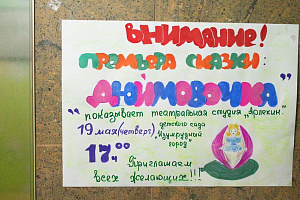 Внимание!
Премьера сказки:
"Дюймовочка"
показывает театральная студия "Арлекин"
детского сада
19 мая (четверг) "Изумрудный
город"
17⁰⁰
Приглашаем
всех желающих!!!